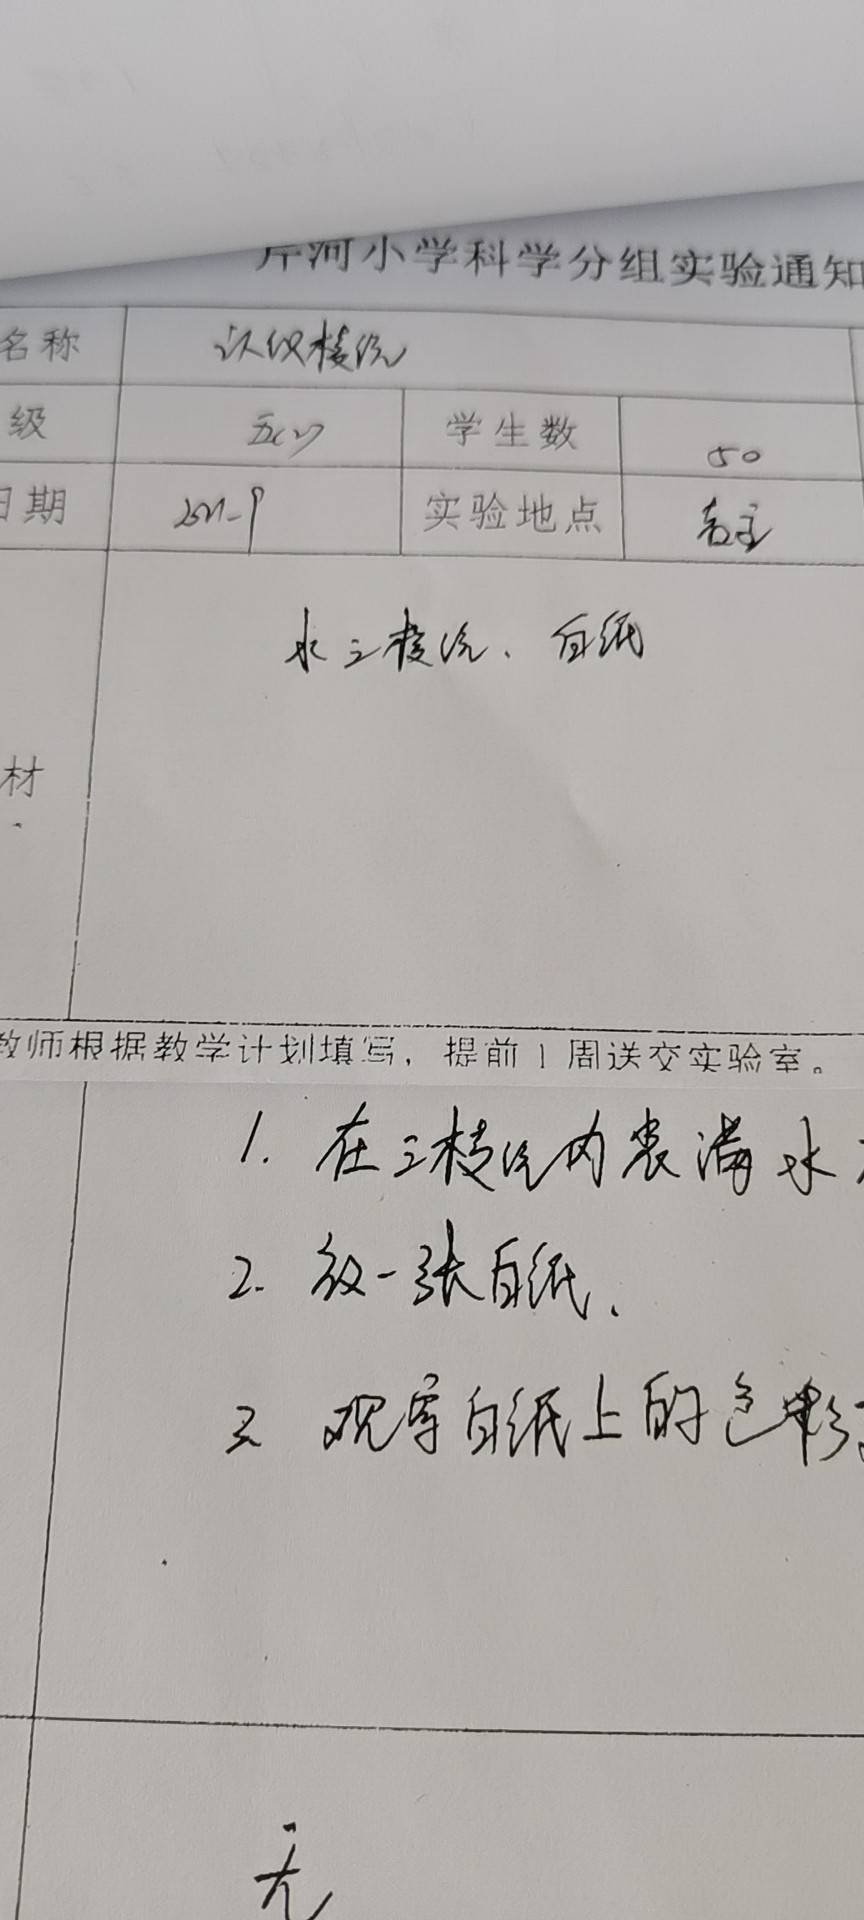 河小学科学分组实验通知
名称 认识棱镜
级 五(2) 学生数 50
日期 2021-9 实验地点
水 三棱镜、白纸
材
教师根据教学计划填写，提前1周送交实验室。
1. 在三棱镜内装满水
2. 放一张白纸.
3 观察白纸上的色彩
无